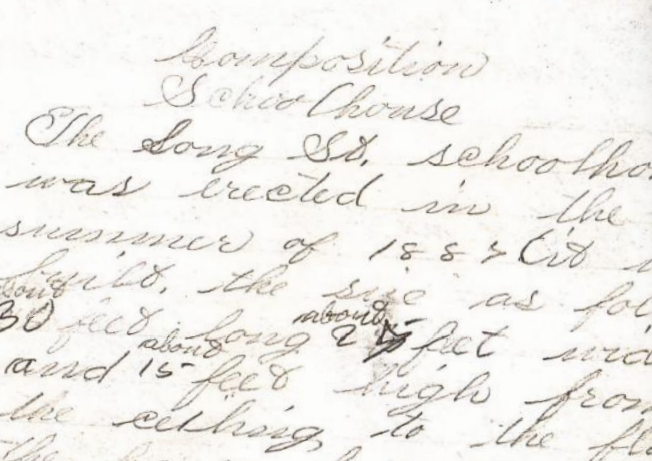 Composition
Schoolhouse
The Long St. schoolho
was erected in the
summer of 1887 (it
built, the size as fol
about about
30 feet long 25 feet wid
about
and 15 feet high from
the ceiling to the flo
the